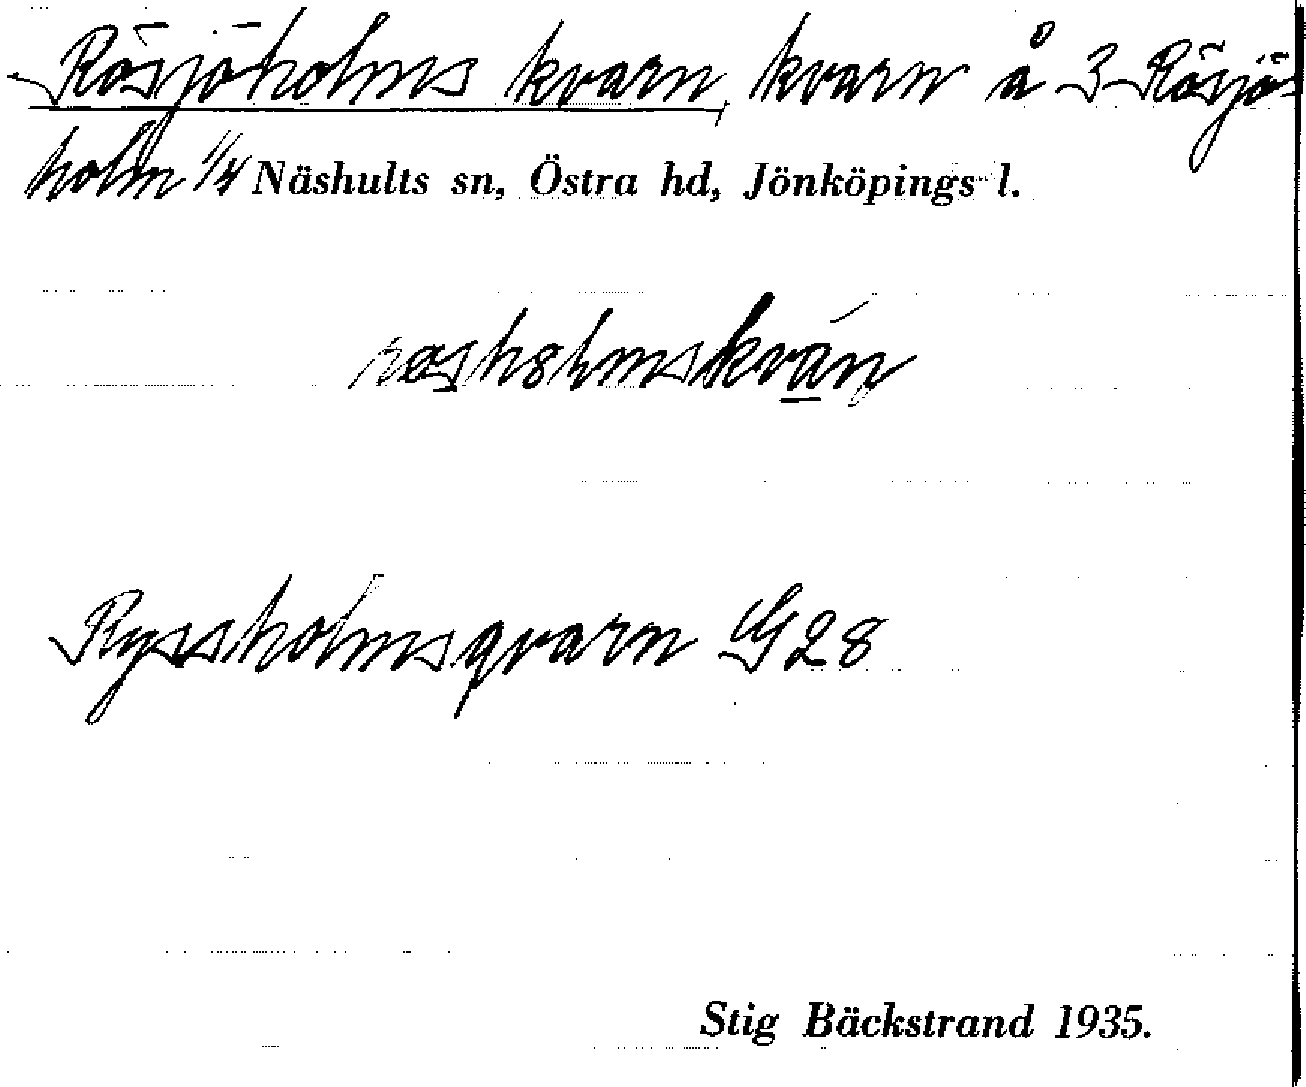 Rösjöholms kvarn, kvarn å 3 Rösjö-
holm 1/4 Näshults sn, Östra hd, Jönköpings l.
Ryssholmsqvarn G28
Stig Bäckstrand 1935.